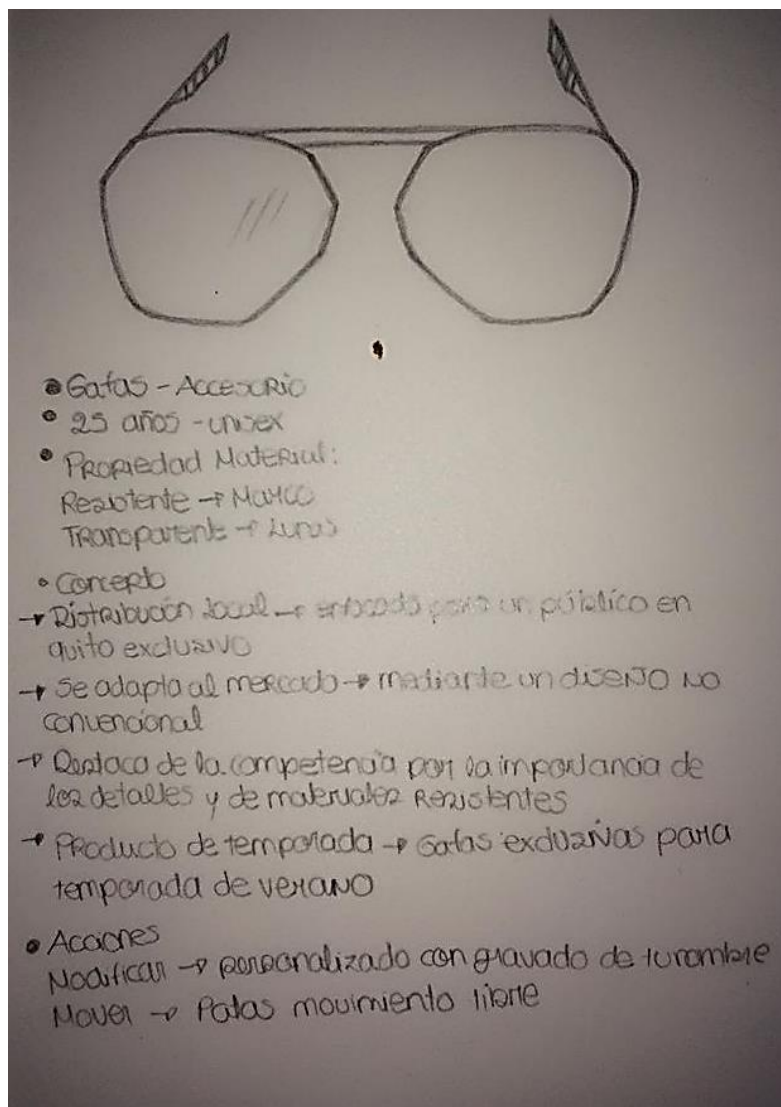 • Gafas - Accesorio
• 25 años - unisex
• Propiedad Material:
Resistente → Marco
Transparente → Lunas
• Concepto
→ Distribución local → enfocado para un público en
quito exclusivo
→ Se adapta al mercado → mediante un diseño no
convencional
→ Destaca de la competencia por la importancia de
los detalles y de materiales resistentes
→ Producto de temporada → Gafas exclusivas para
temporada de verano
• Acciones
Modificar → personalizado con gravado de tu nombre
Mover → Patas movimiento libre